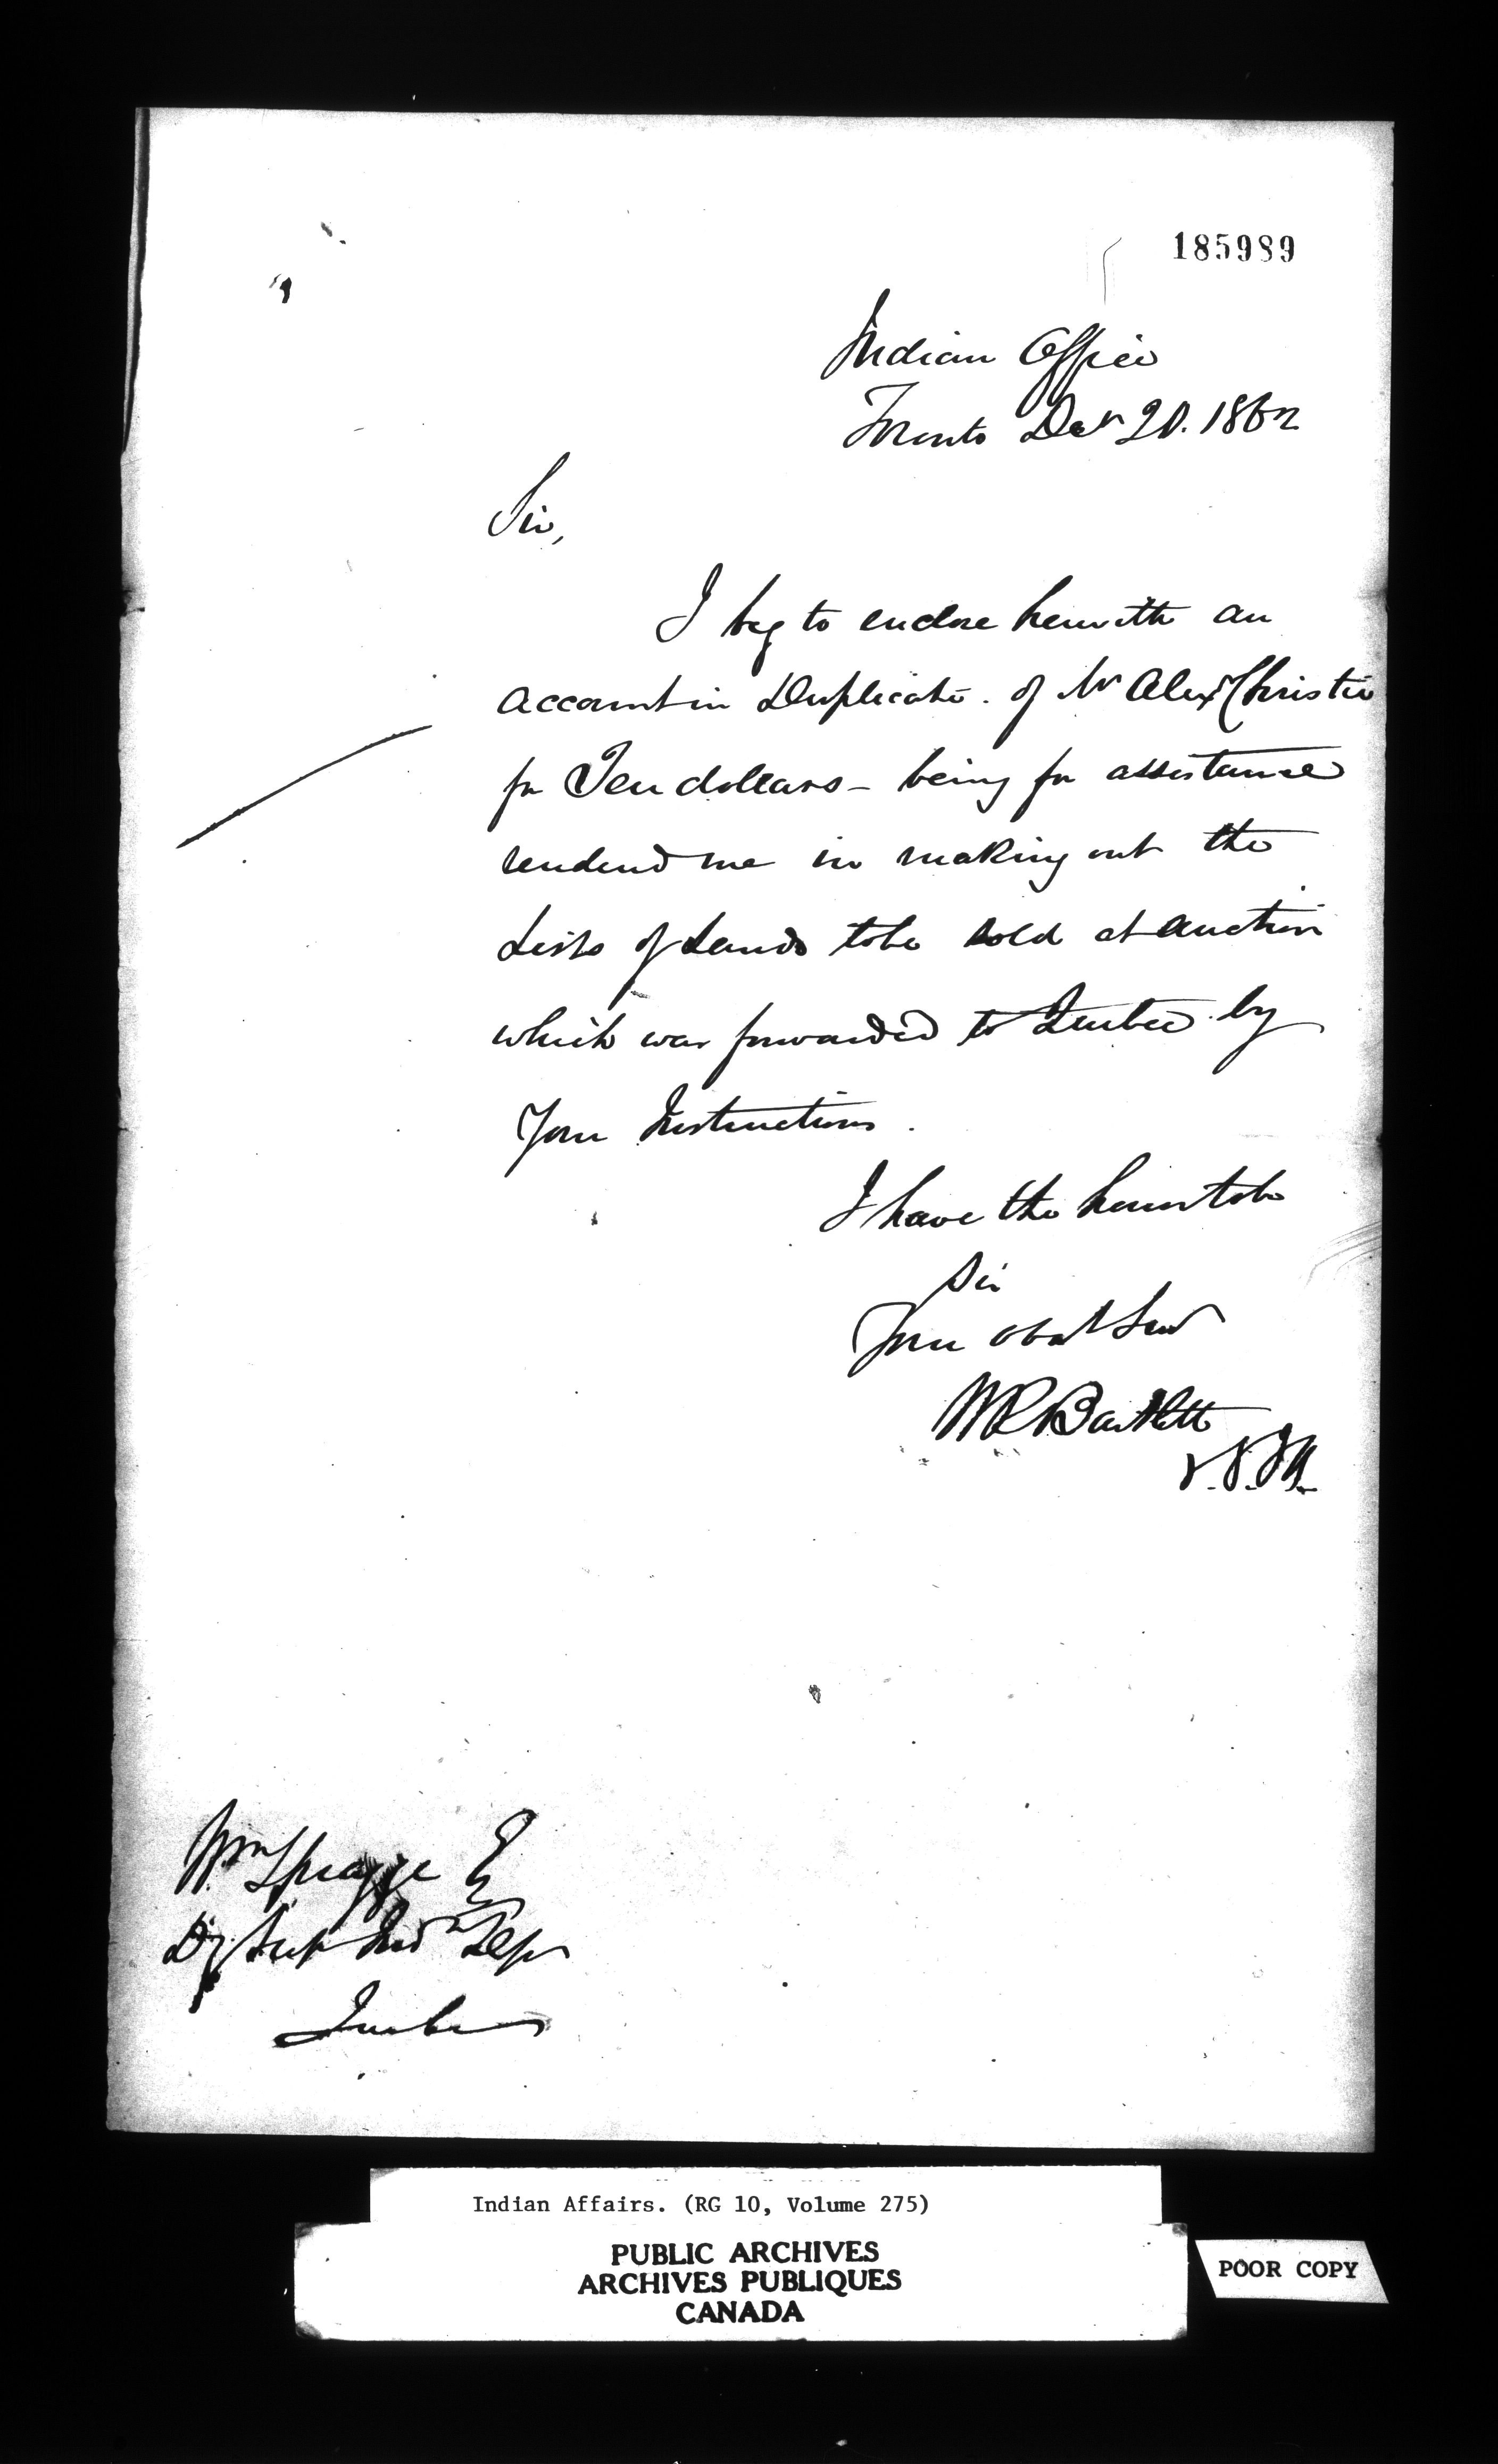 185989
Indian Office
Toronto Decr 20. 1862
Sir,
I beg to enclose herewith an
account in Duplicate. of Mr Alexr Christie
for Ten dollars - being for assistance
rendered me in making out the
Lists of Lands to be sold at auction
which was forwarded to Quebec by
Your Instructions.
I have the honor to be
Sir
Your obdt Servt
WR Bartlett
V.S.I.A.
Wm Spragge Esq
Dy Supt Indn Dept
Quebec
Indian Affairs. (RG 10, Volume 275)
PUBLIC ARCHIVES
ARCHIVES PUBLIQUES
CANADA
POOR COPY